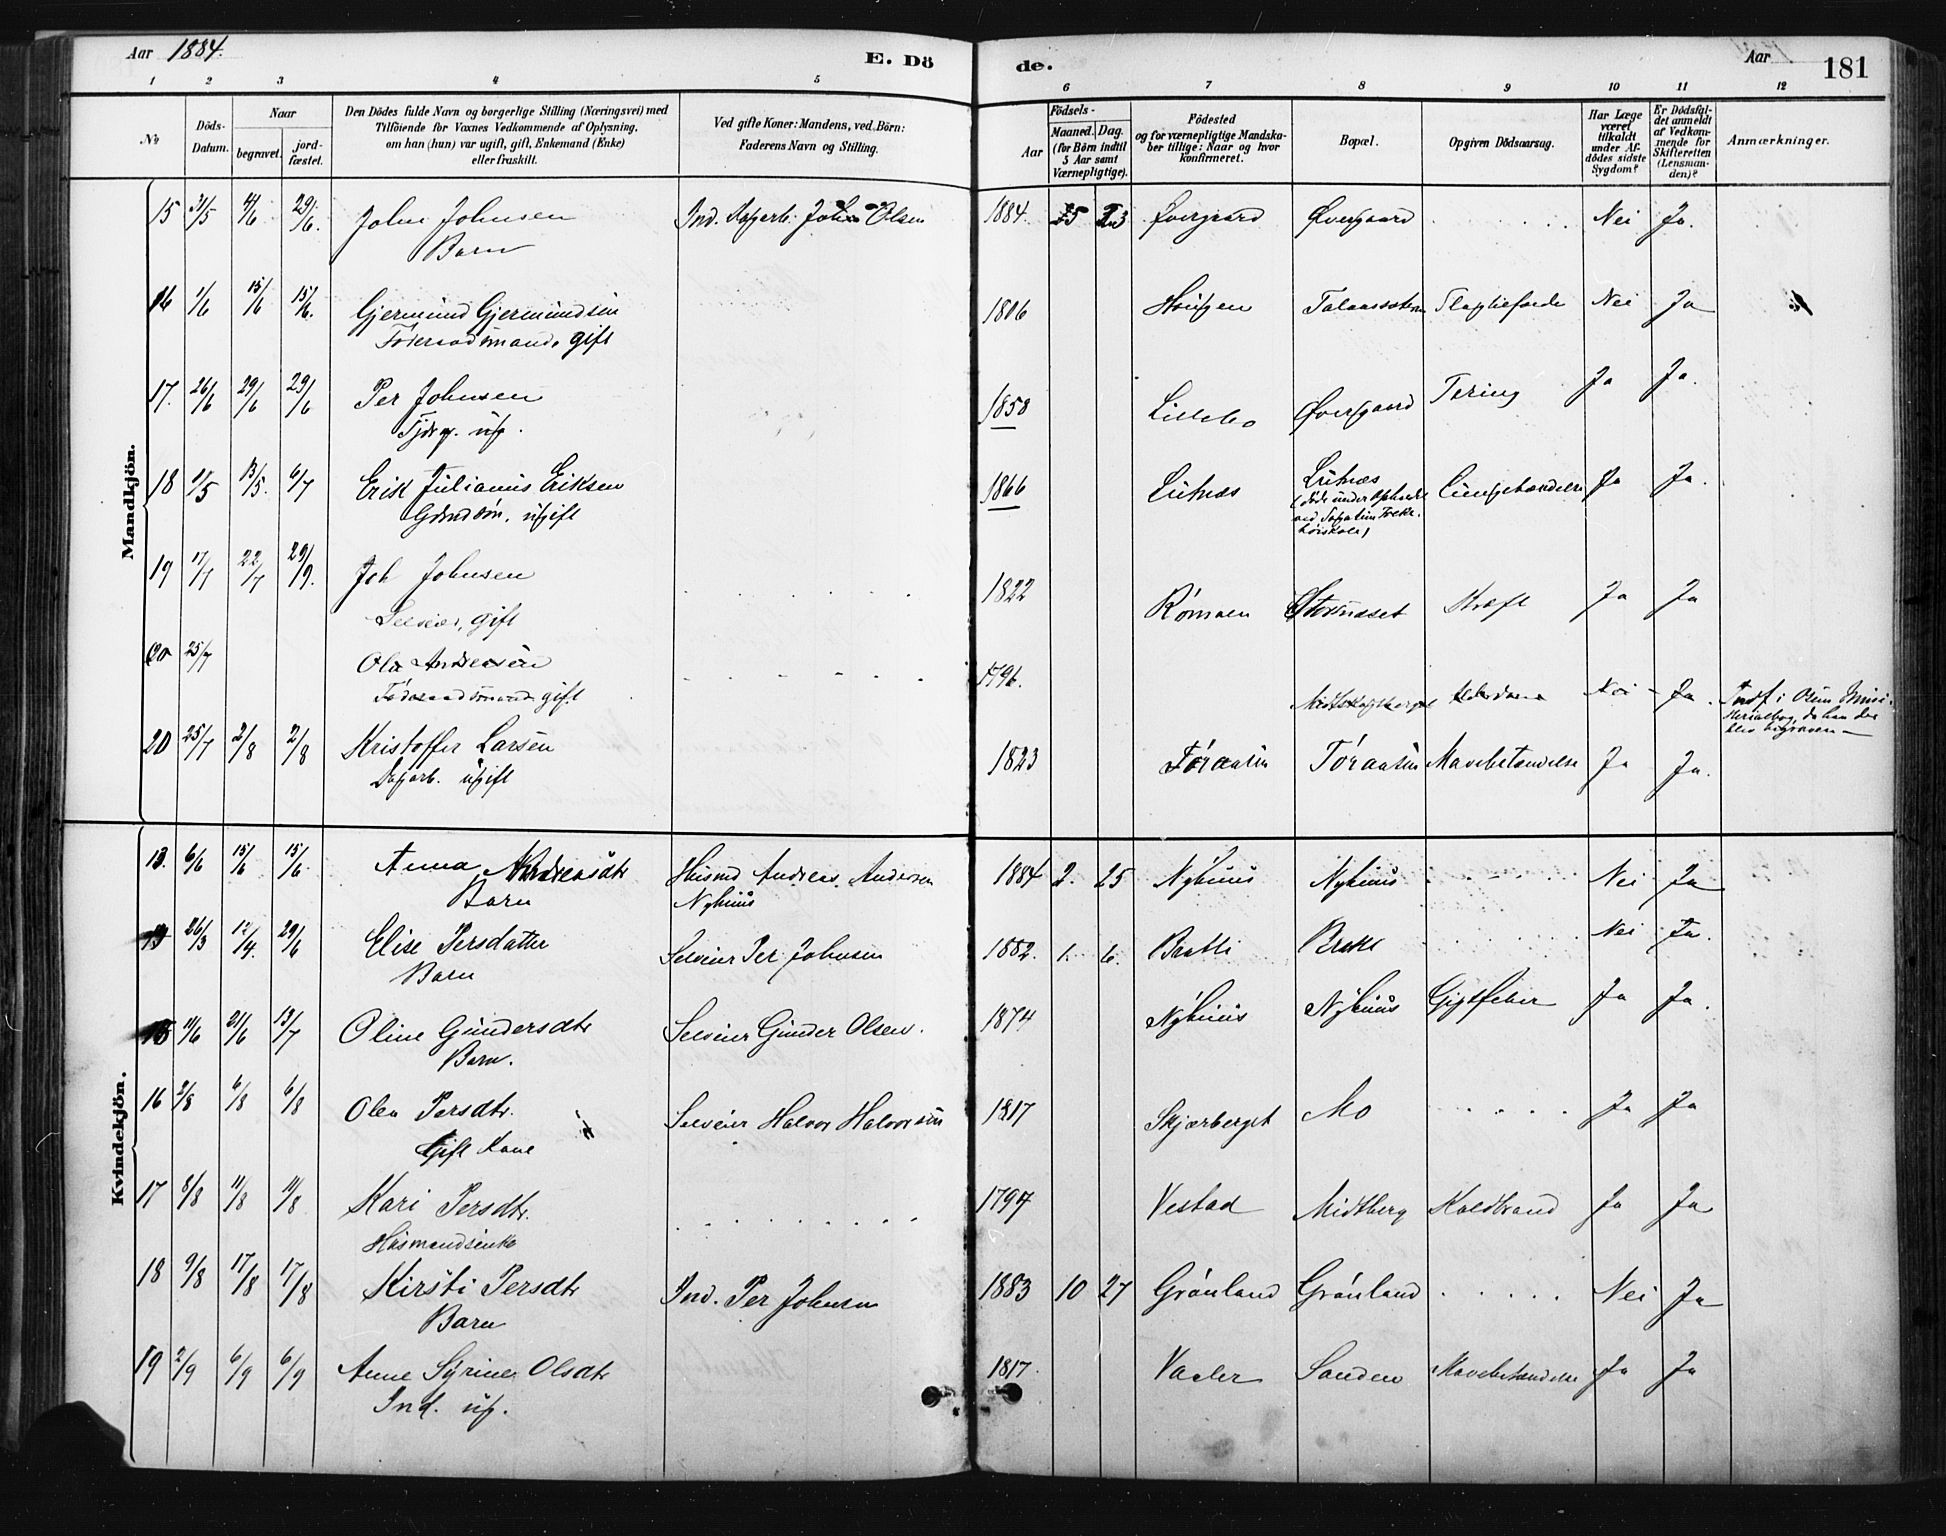 Aar 1884.
E. Dö
de.
Aar
181
1 2 3 4 5 6 7 8 9 10 11 12
No
Döds-Datum.
Naar
begravet.
jord-fæstet.
Den Dödes fulde Navn og borgerlige Stilling (Næringsvei) med
Tilföiende for Voxnes Vedkommende af Oplysning,
om han (hun) var ugift, gift, Enkemand (Enke)
eller fraskilt.
Ved gifte Koner: Mandens, ved Börn:
Faderens Navn og Stilling.
Födsels-
Aar
Maaned. Dag.
(for Börn indtil
5 Aar samt
Værnepligtige).
Födested
og for værnepligtige Mandska-
ber tillige: Naar og hvor
konfirmeret.
Bopæl.
Opgiven Dödsaarsag.
Har Læge
været
tilkaldt
under Af-
dödes sidste
Sygdom?
Er Dödsfal-
det anmeldt
af Vedkom-
mende for
Skifteretten
(Lensman-
den)?
Anmærkninger.
Mandkjön.
15 31/5 4/6 29/6. John Johnsen Ind. Dagarb. John Olsen 1884. 5 23 Øvergaard Øvergaard Nei Ja.
Barn
16 1/6 15/6 15/6. Gjermund Gjermundsen 1806 Haugen Nei Ja
Föderaadsmand, gift
17. 26/6 29/6 29/6 Per Johnsen 1858 Lillebo Øvergaard Tering Ja Ja.
ug.
18 1/5 13/5. 6/7 Erik Julianus Eriksen 1866 Lutnæs Lutnæs Lungebetændelse Ja Ja.
Gaardsön, ugift
höiskole)
19 17/7 22/7 29/9. Joh Johnsen 1822 Römoen Stornæset Kræft Ja Ja
Selveier, gift
20 25/7 Ola Andreasen 1796. Alderdom Nei Ja.
Föderaadsmand gift
Indf. i
blev begraven
20 25/7 2/8 2/8 Kristoffer Larsen 1823 Töraasen Töraasen Mavebetændelse Ja Ja.
Dagarb. ugift
Kvindekjön.
13. 6/6 15/6 15/6. Anna Andreasdtr Husmd Andreas Andersen 1884 2. 25 Nyhuus Nyhuus Nei Ja
Barn Nyhuus
26/3 12/4. 29/6 Elise Persdatter Selveier Per Johnsen 1882. 1. 6. Bratli Brekk Nei Ja.
Barn
15 11/6 21/6 13/7 Oline Gundersdtr Selveier Gunder Olsen. 1874 Nyhuus Nyhuus Gigtfeber Ja Ja.
Barn.
16 2/8 6/8 6/8 Olea Persdtr. Selveier Halvor Halvorsen 1817 Skjærberget Mo Ja Ja
Gift Kone
17 8/8 11/8 11/8 Kari Persdtr. 1797 Vestad Midtberg Koldbrand Ja Ja
Husmandsenke
18 9/8 17/8 17/8 Kirsti Persdtr Ind. Per Johnsen 1883 10 27 Grönland Grönland Nei Ja
Barn
19 2/9 6/9 6/9 Anne Syrine Olsdtr 1817. Vaaler Sanden Mavebetændelse Ja Ja
Ind. ug.